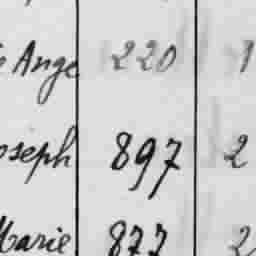 Ange 220 1
oseph 897 2
Marie 877 2